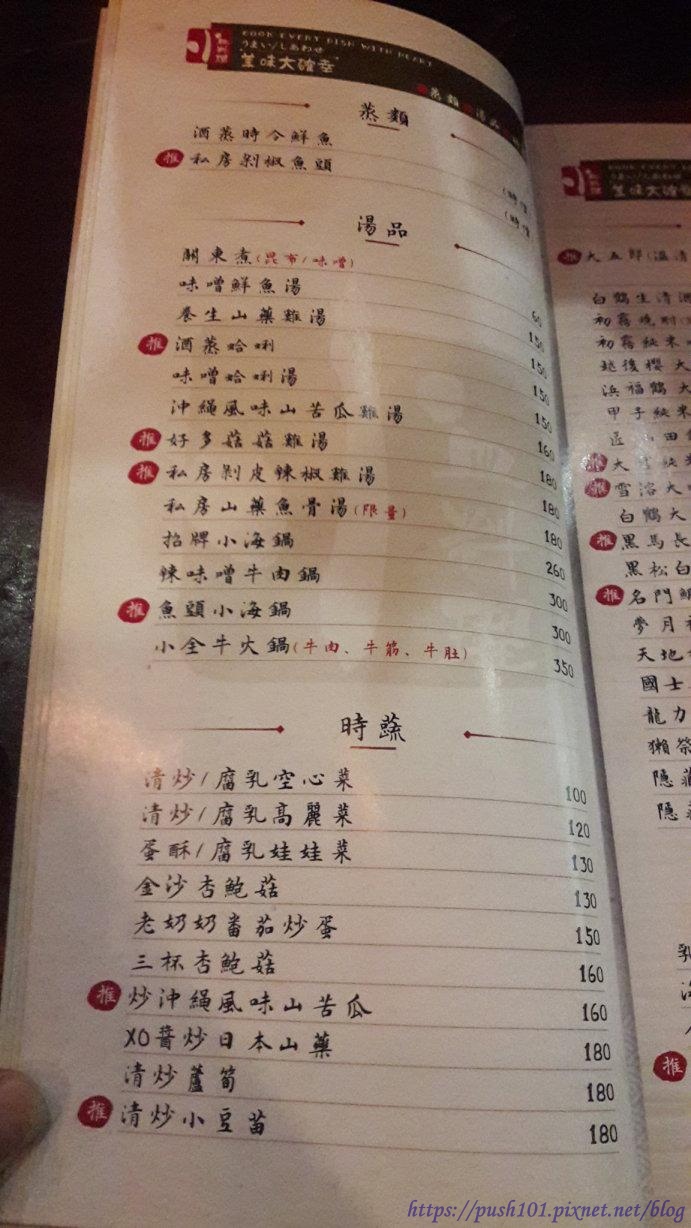 COOK EVERY DISH WITH HEART
うまい/しあわせ
美味大確幸
蒸類
酒蒸時令鮮魚 (時價
推 私房剁椒魚頭 (時價
湯品
關東煮(昆布/味噌) 60
味噌鮮魚湯 150
養生山藥雞湯 150
推 酒蒸蛤蜊 150
味噌蛤蜊湯 150
沖繩風味山苦瓜雞湯 160
推 好多菇菇雞湯 180
推 私房剝皮辣椒雞湯 180
私房山藥魚骨湯(限量) 180
招牌小海鍋 260
辣味噌牛肉鍋 300
推 魚頭小海鍋 300
小全牛火鍋(牛肉、牛筋、牛肚) 350
時蔬
清炒/腐乳空心菜 100
清炒/腐乳高麗菜 120
蛋酥/腐乳娃娃菜 130
金沙杏鮑菇 130
老奶奶番茄炒蛋 150
三杯杏鮑菇 160
推 炒沖繩風味山苦瓜 160
XO醬炒日本山藥 180
清炒蘆筍 180
推 清炒小豆苗 180
COOK EVERY
うまい/しあわせ
美味大確幸
推 大五郎(溫清
白鶴生清酒
初霧燒酎
初霧純米
越後櫻 大
浜福鶴 大
甲子純米
匠 山田
推 大雪純米
推 雪溶大
白鶴大
推 黑馬長
黑松白
推 名門
夢月
天地
國士
龍力
獺祭
隱藏
隱
推
https://push101.pixnet.net/blog